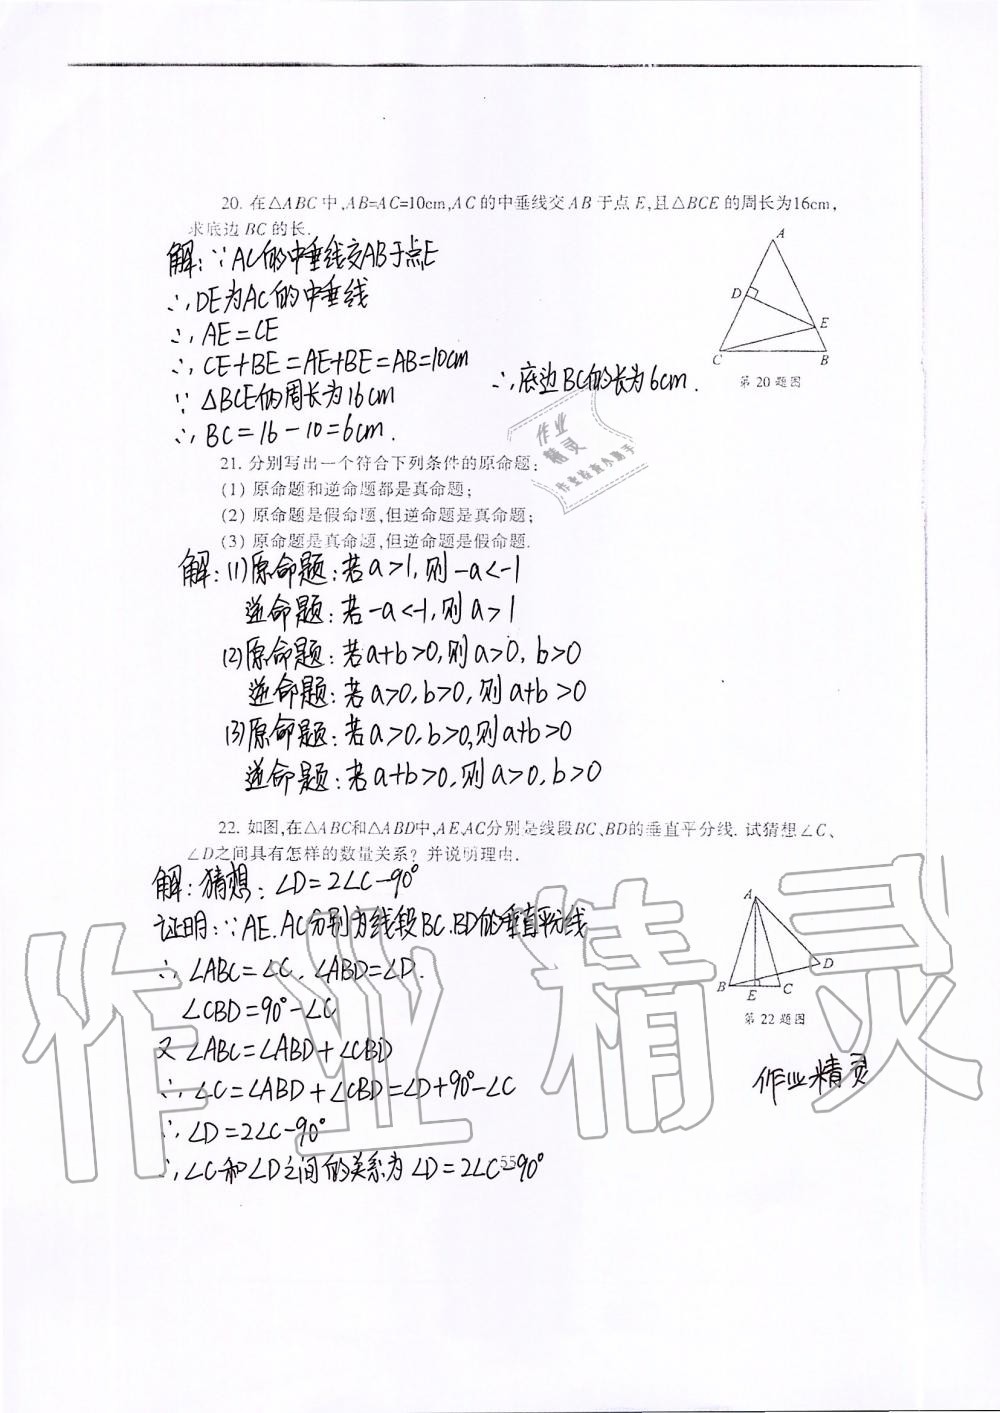 20. 在△ABC中,AB=AC=10cm,AC的中垂线交AB于点E,且△BCE的周长为16cm,
求底边BC的长.
解:∵AC的中垂线交AB于点E
∴DE为AC的中垂线
∴AE=CE
∴CE+BE=AE+BE=AB=10cm
∵△BCE的周长为16cm
∴BC=16-10=6cm.
∴底边BC的长为6cm.
A
D
E
C
B
第20题图
作业
精灵
作业检查小助手
21. 分别写出一个符合下列条件的原命题:
(1) 原命题和逆命题都是真命题;
(2) 原命题是假命题,但逆命题是真命题;
(3) 原命题是真命题,但逆命题是假命题.
解:(1)原命题:若a>1,则-a<-1
逆命题:若-a<-1,则a>1
(2)原命题:若a+b>0,则a>0,b>0
逆命题:若a>0,b>0,则a+b>0
(3)原命题:若a>0,b>0,则a+b>0
逆命题:若a+b>0,则a>0,b>0
22. 如图,在△ABC和△ABD中,AE,AC分别是线段BC、BD的垂直平分线. 试猜想∠C、
∠D之间具有怎样的数量关系? 并说明理由.
解:猜想:∠D=2∠C-90°
证明:∵AE.AC分别为线段BC.BD的垂直平分线
∴∠ABC=∠C.∠ABD=∠D.
∠CBD=90°-∠C
又∠ABC=∠ABD+∠CBD
∴∠C=∠ABD+∠CBD=∠D+90°-∠C
∴∠D=2∠C-90°
∴∠C和∠D之间的关系为∠D=2∠C-90°
A
D
B
E
C
第22题图
作业精灵
55
作业精灵